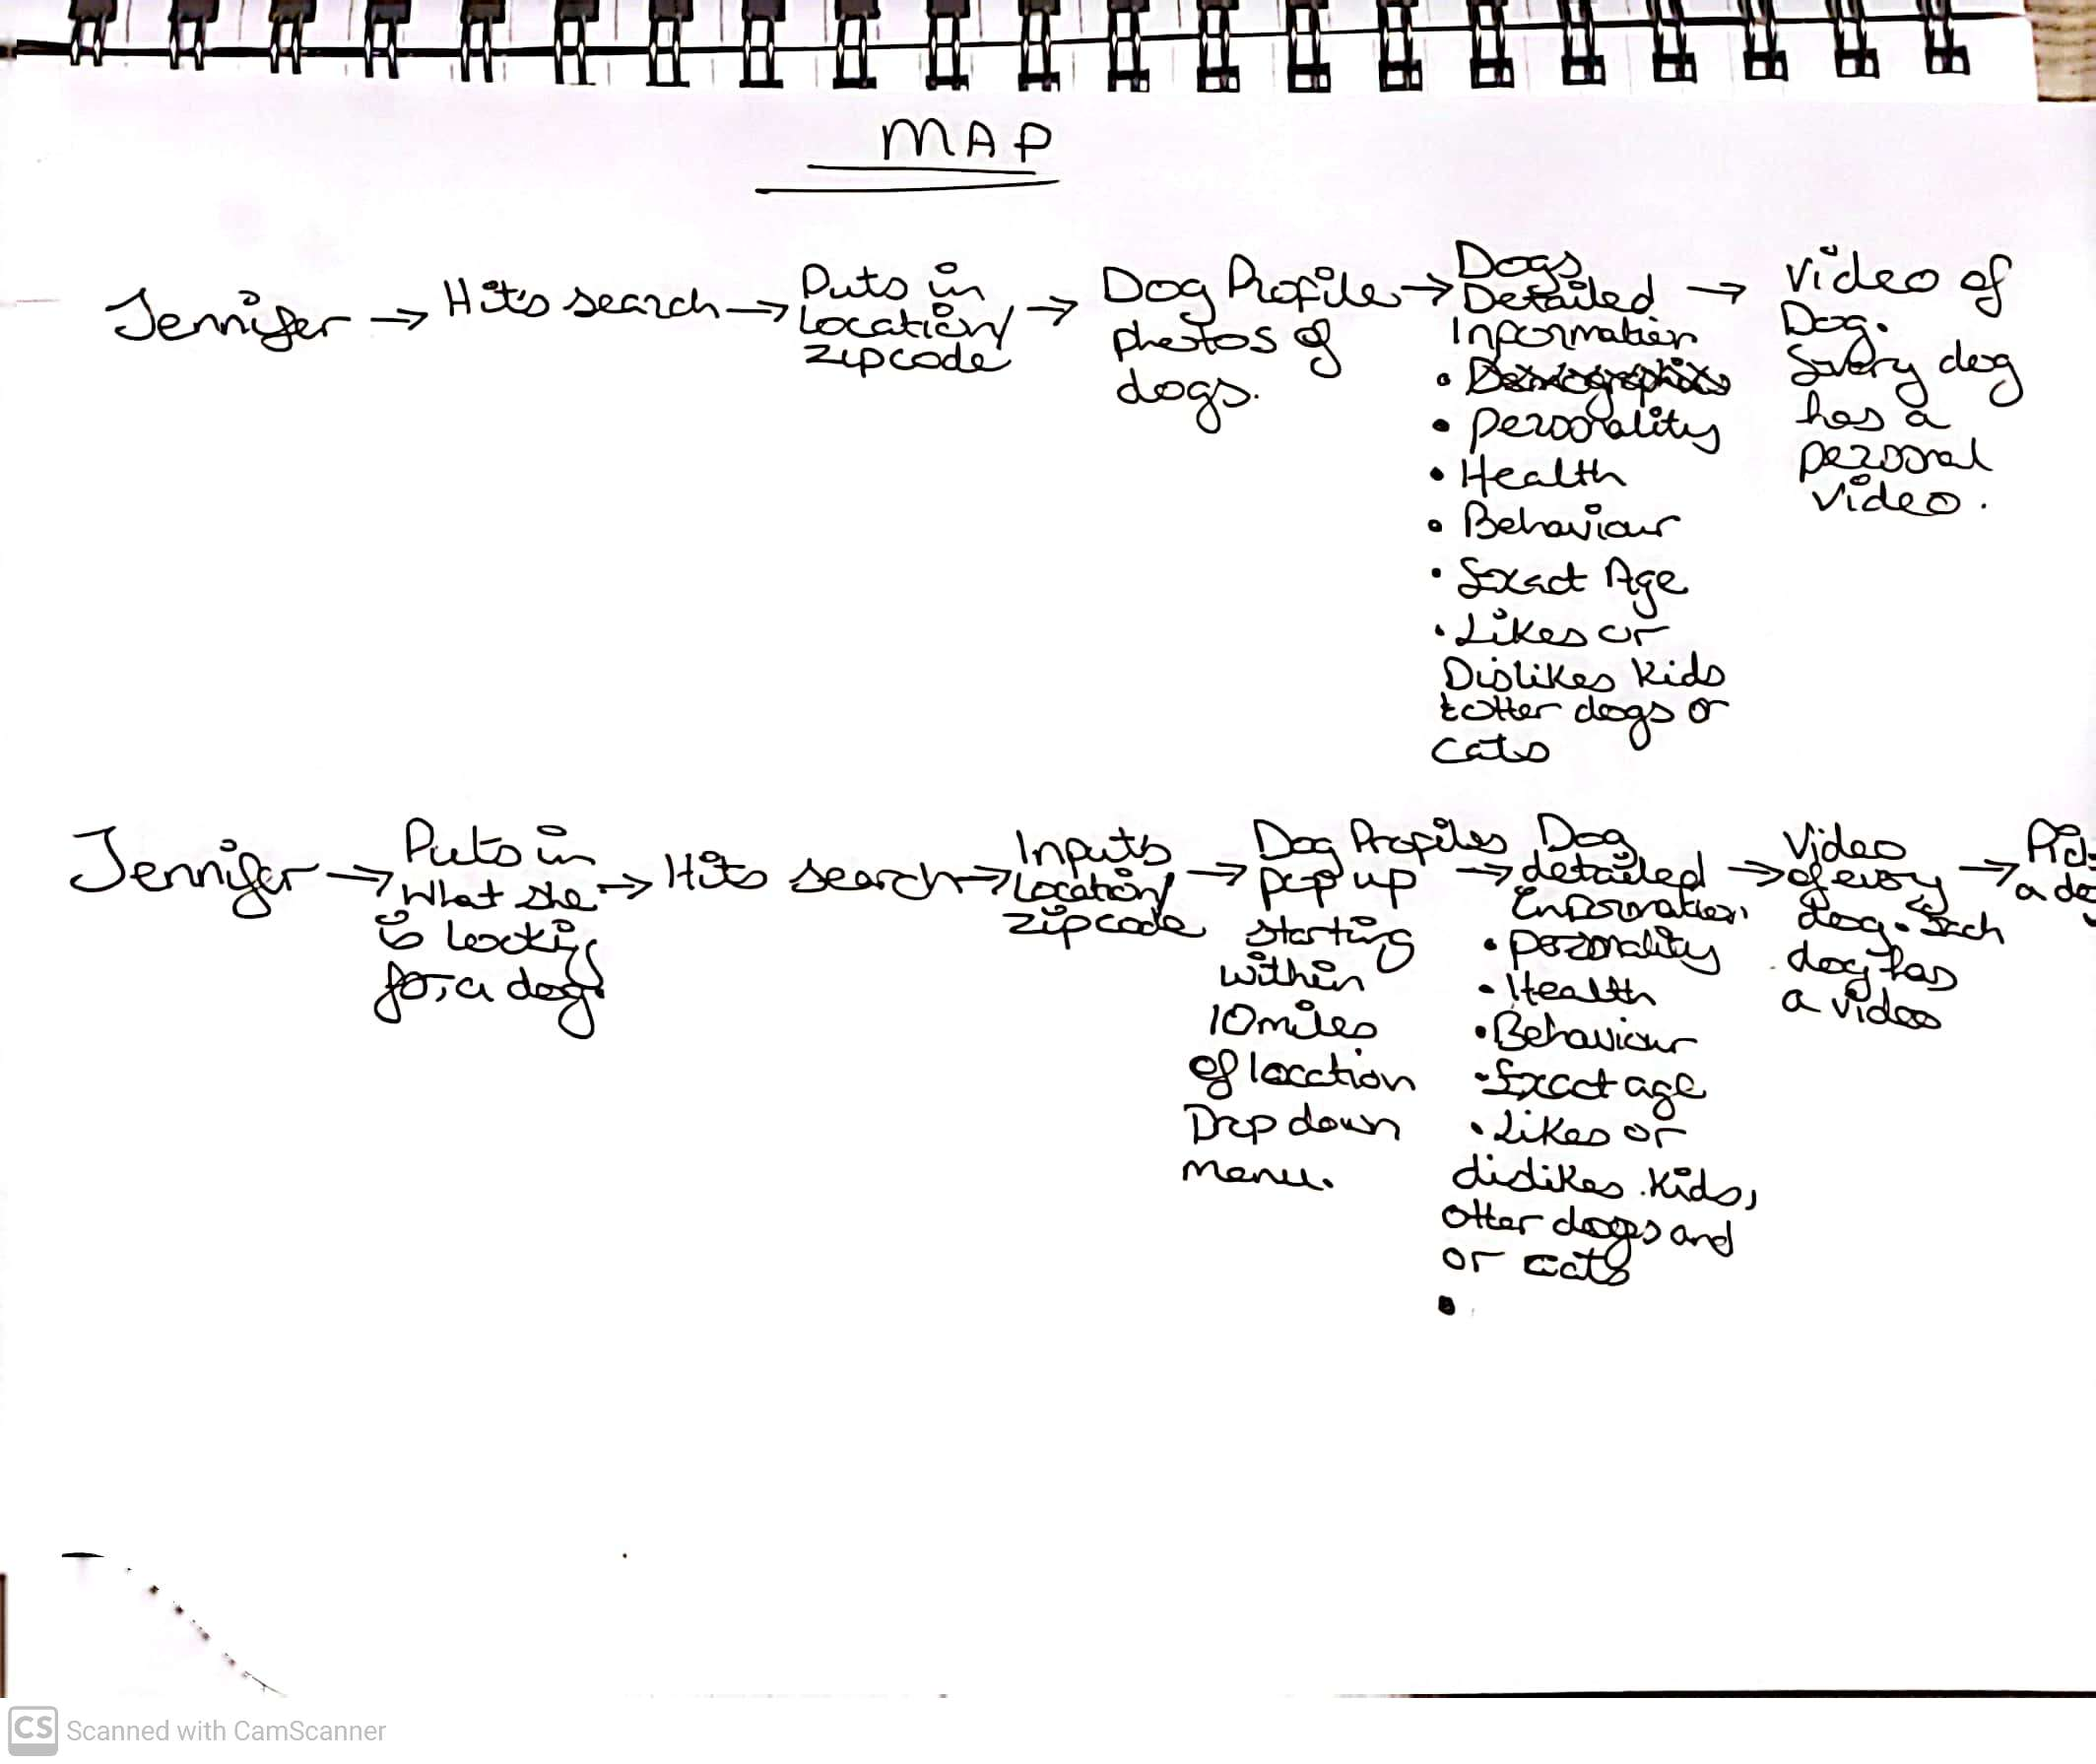 MAP
Jennifer → Hits search → Puts in Location/ zipcode → Dog Profile photos of dogs. → Dogs Detailed Information → Video of Dog. Every dog has a personal video.
• Demographics
• Personality
• Health
• Behaviour
• Exact Age
• Likes or
Dislikes kids
& other dogs or
cats
Jennifer → Puts in What she is looking for, a dog. → Hits search → Inputs Location/ zipcode → Dog Profiles pop up starting within 10 miles of location Drop down menu. → Dog detailed Information → Video of every dog. Each dog has a video →
• Personality
• Health
• Behaviour
• Exact age
• Likes or
dislikes kids,
other doges and
or cats
•
CS Scanned with CamScanner